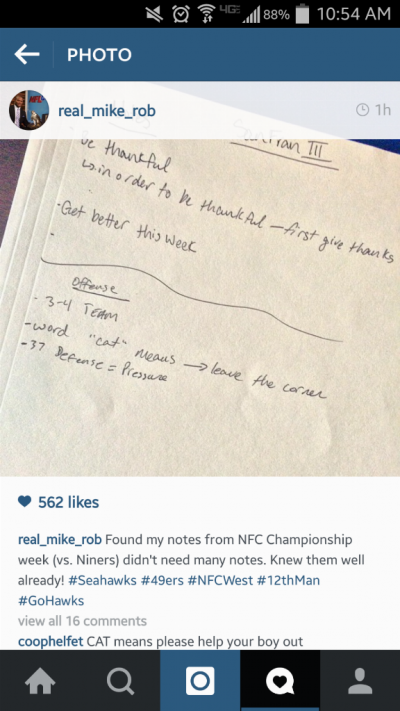 4G
88%
10:54 AM
PHOTO
real_mike_rob
1h
San Fran III
be thankful
in order to be thankful – first give thanks
· Get better this week
Offense
· 3-4 Team
- word "cat" means → leave the corner
- 37 Defense = Pressure
562 likes
real_mike_rob Found my notes from NFC Championship
week (vs. Niners) didn't need many notes. Knew them well
already! #Seahawks #49ers #NFCWest #12thMan
#GoHawks
view all 16 comments
coophelfet CAT means please help your boy out